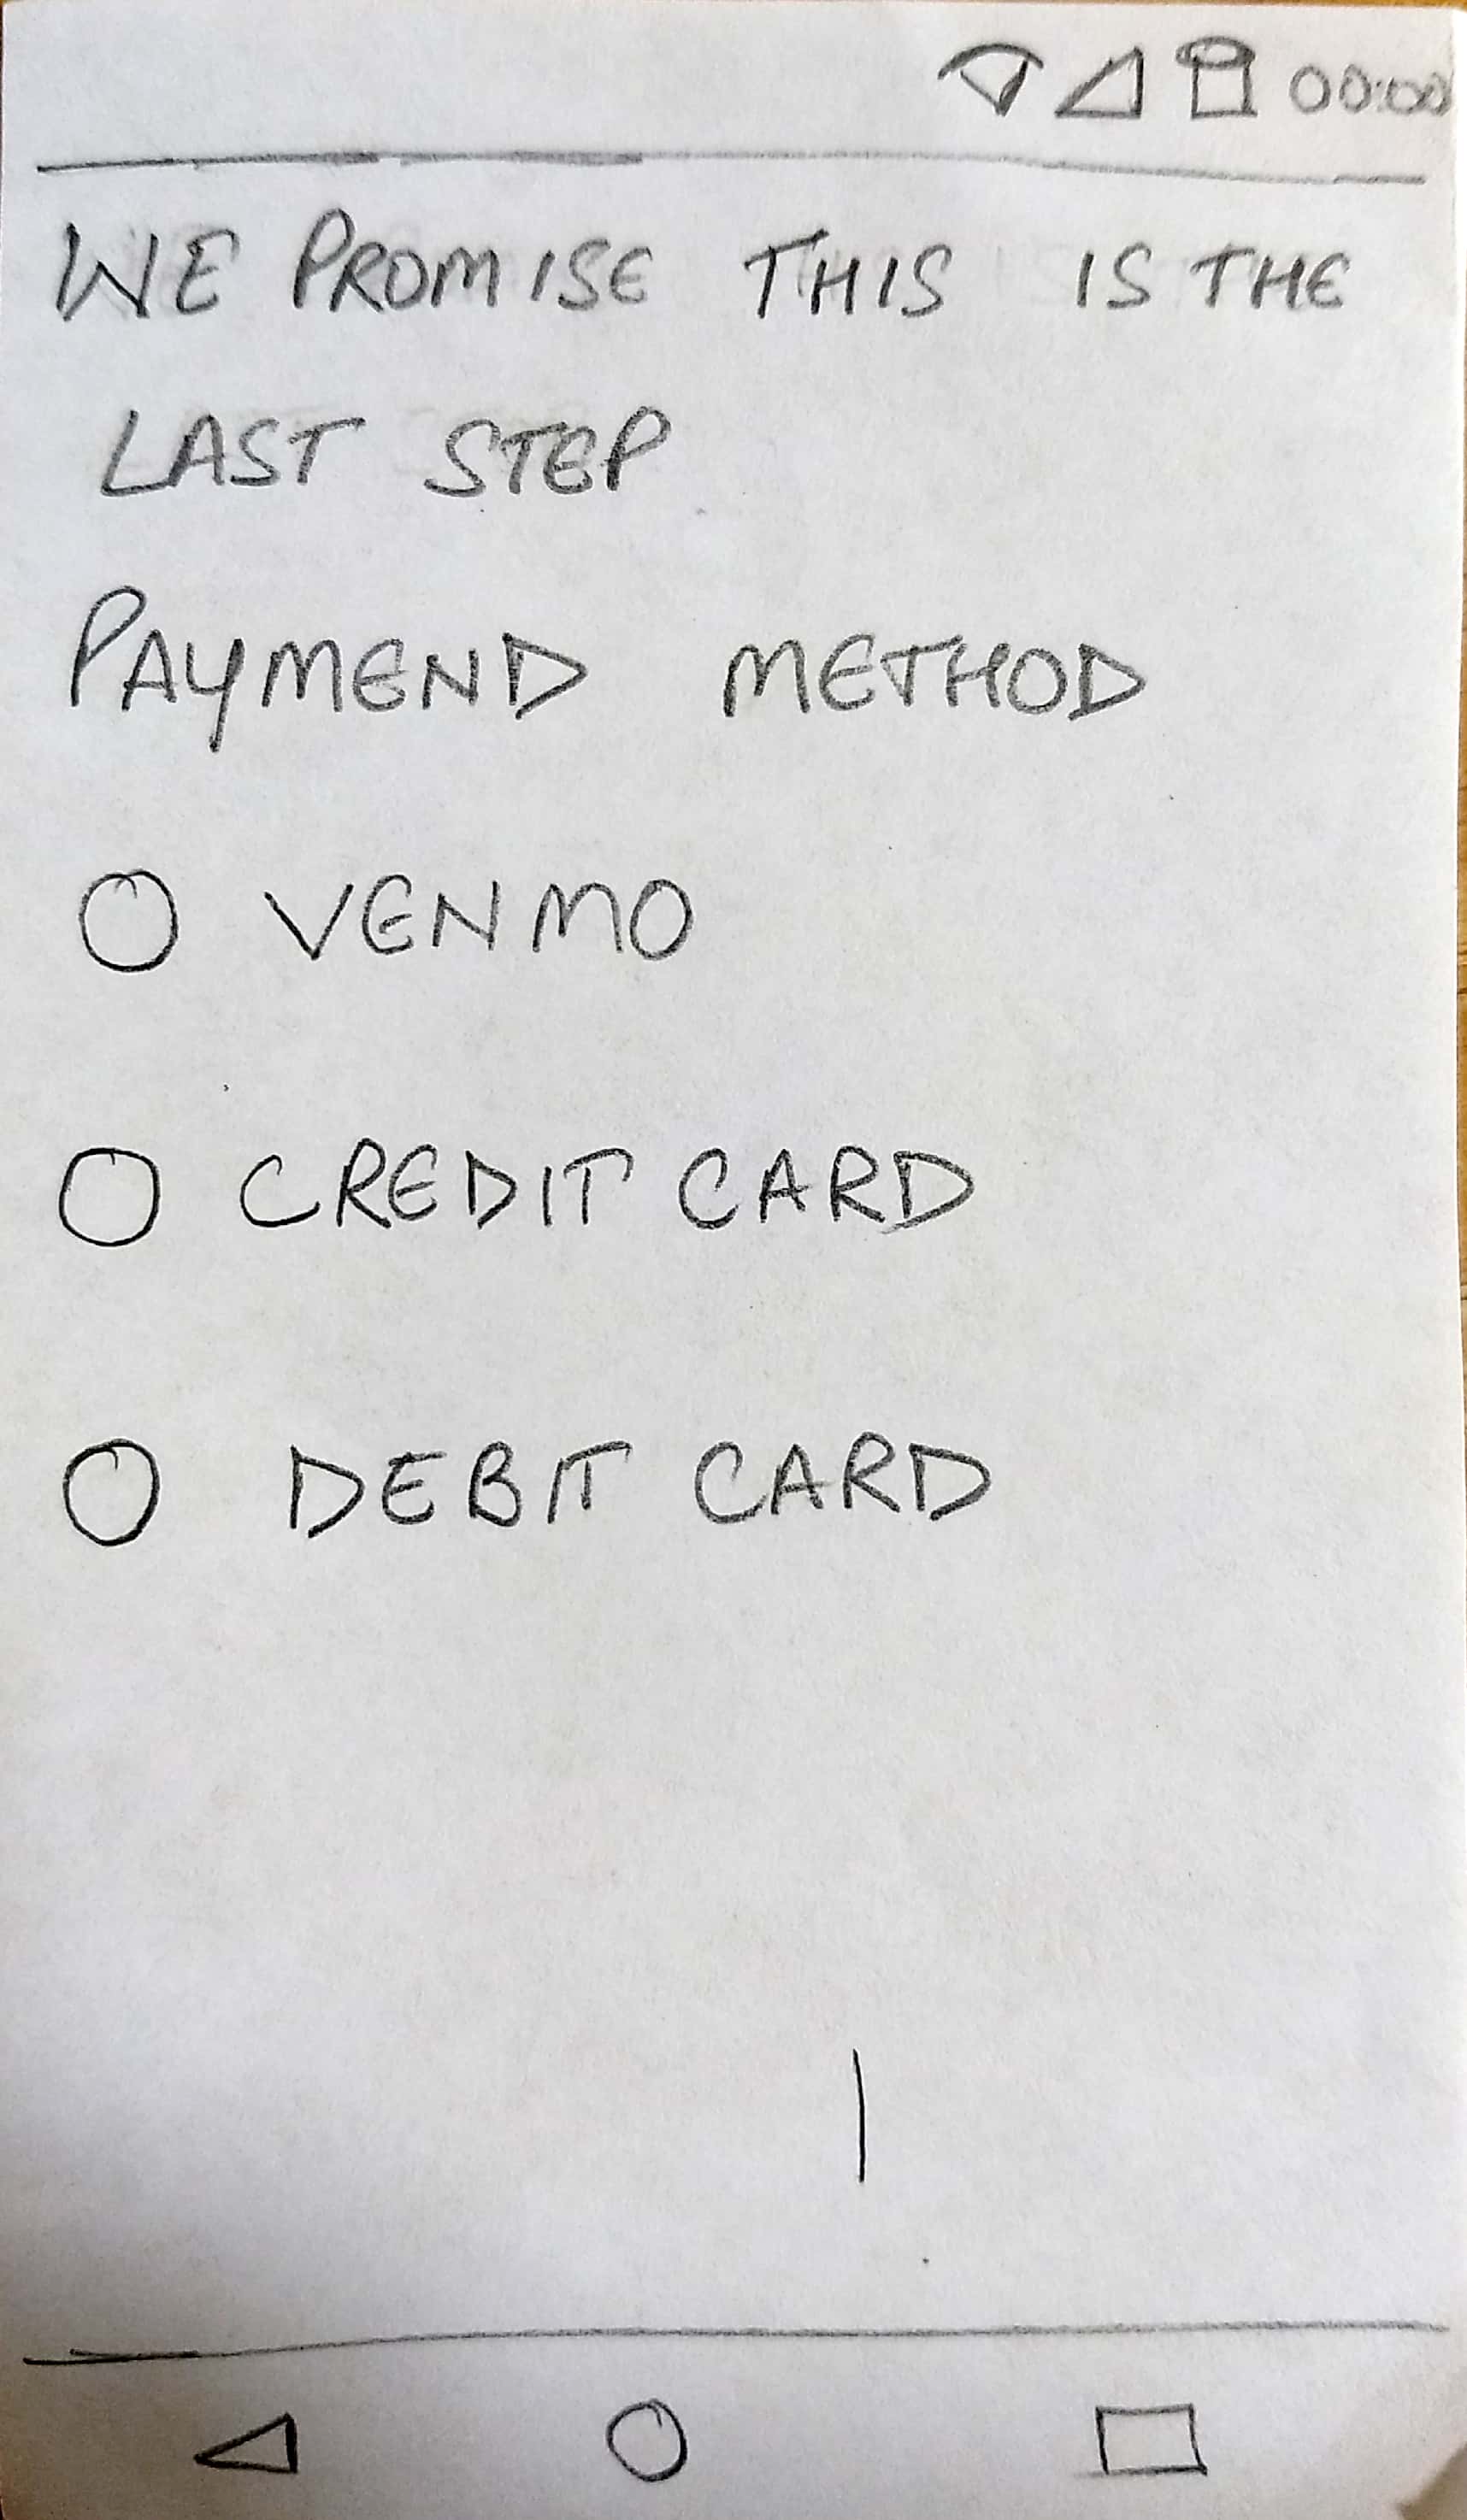 00:00
WE PROMISE THIS IS THE
LAST STEP
PAYMEND METHOD
VENMO
CREDIT CARD
DEBIT CARD